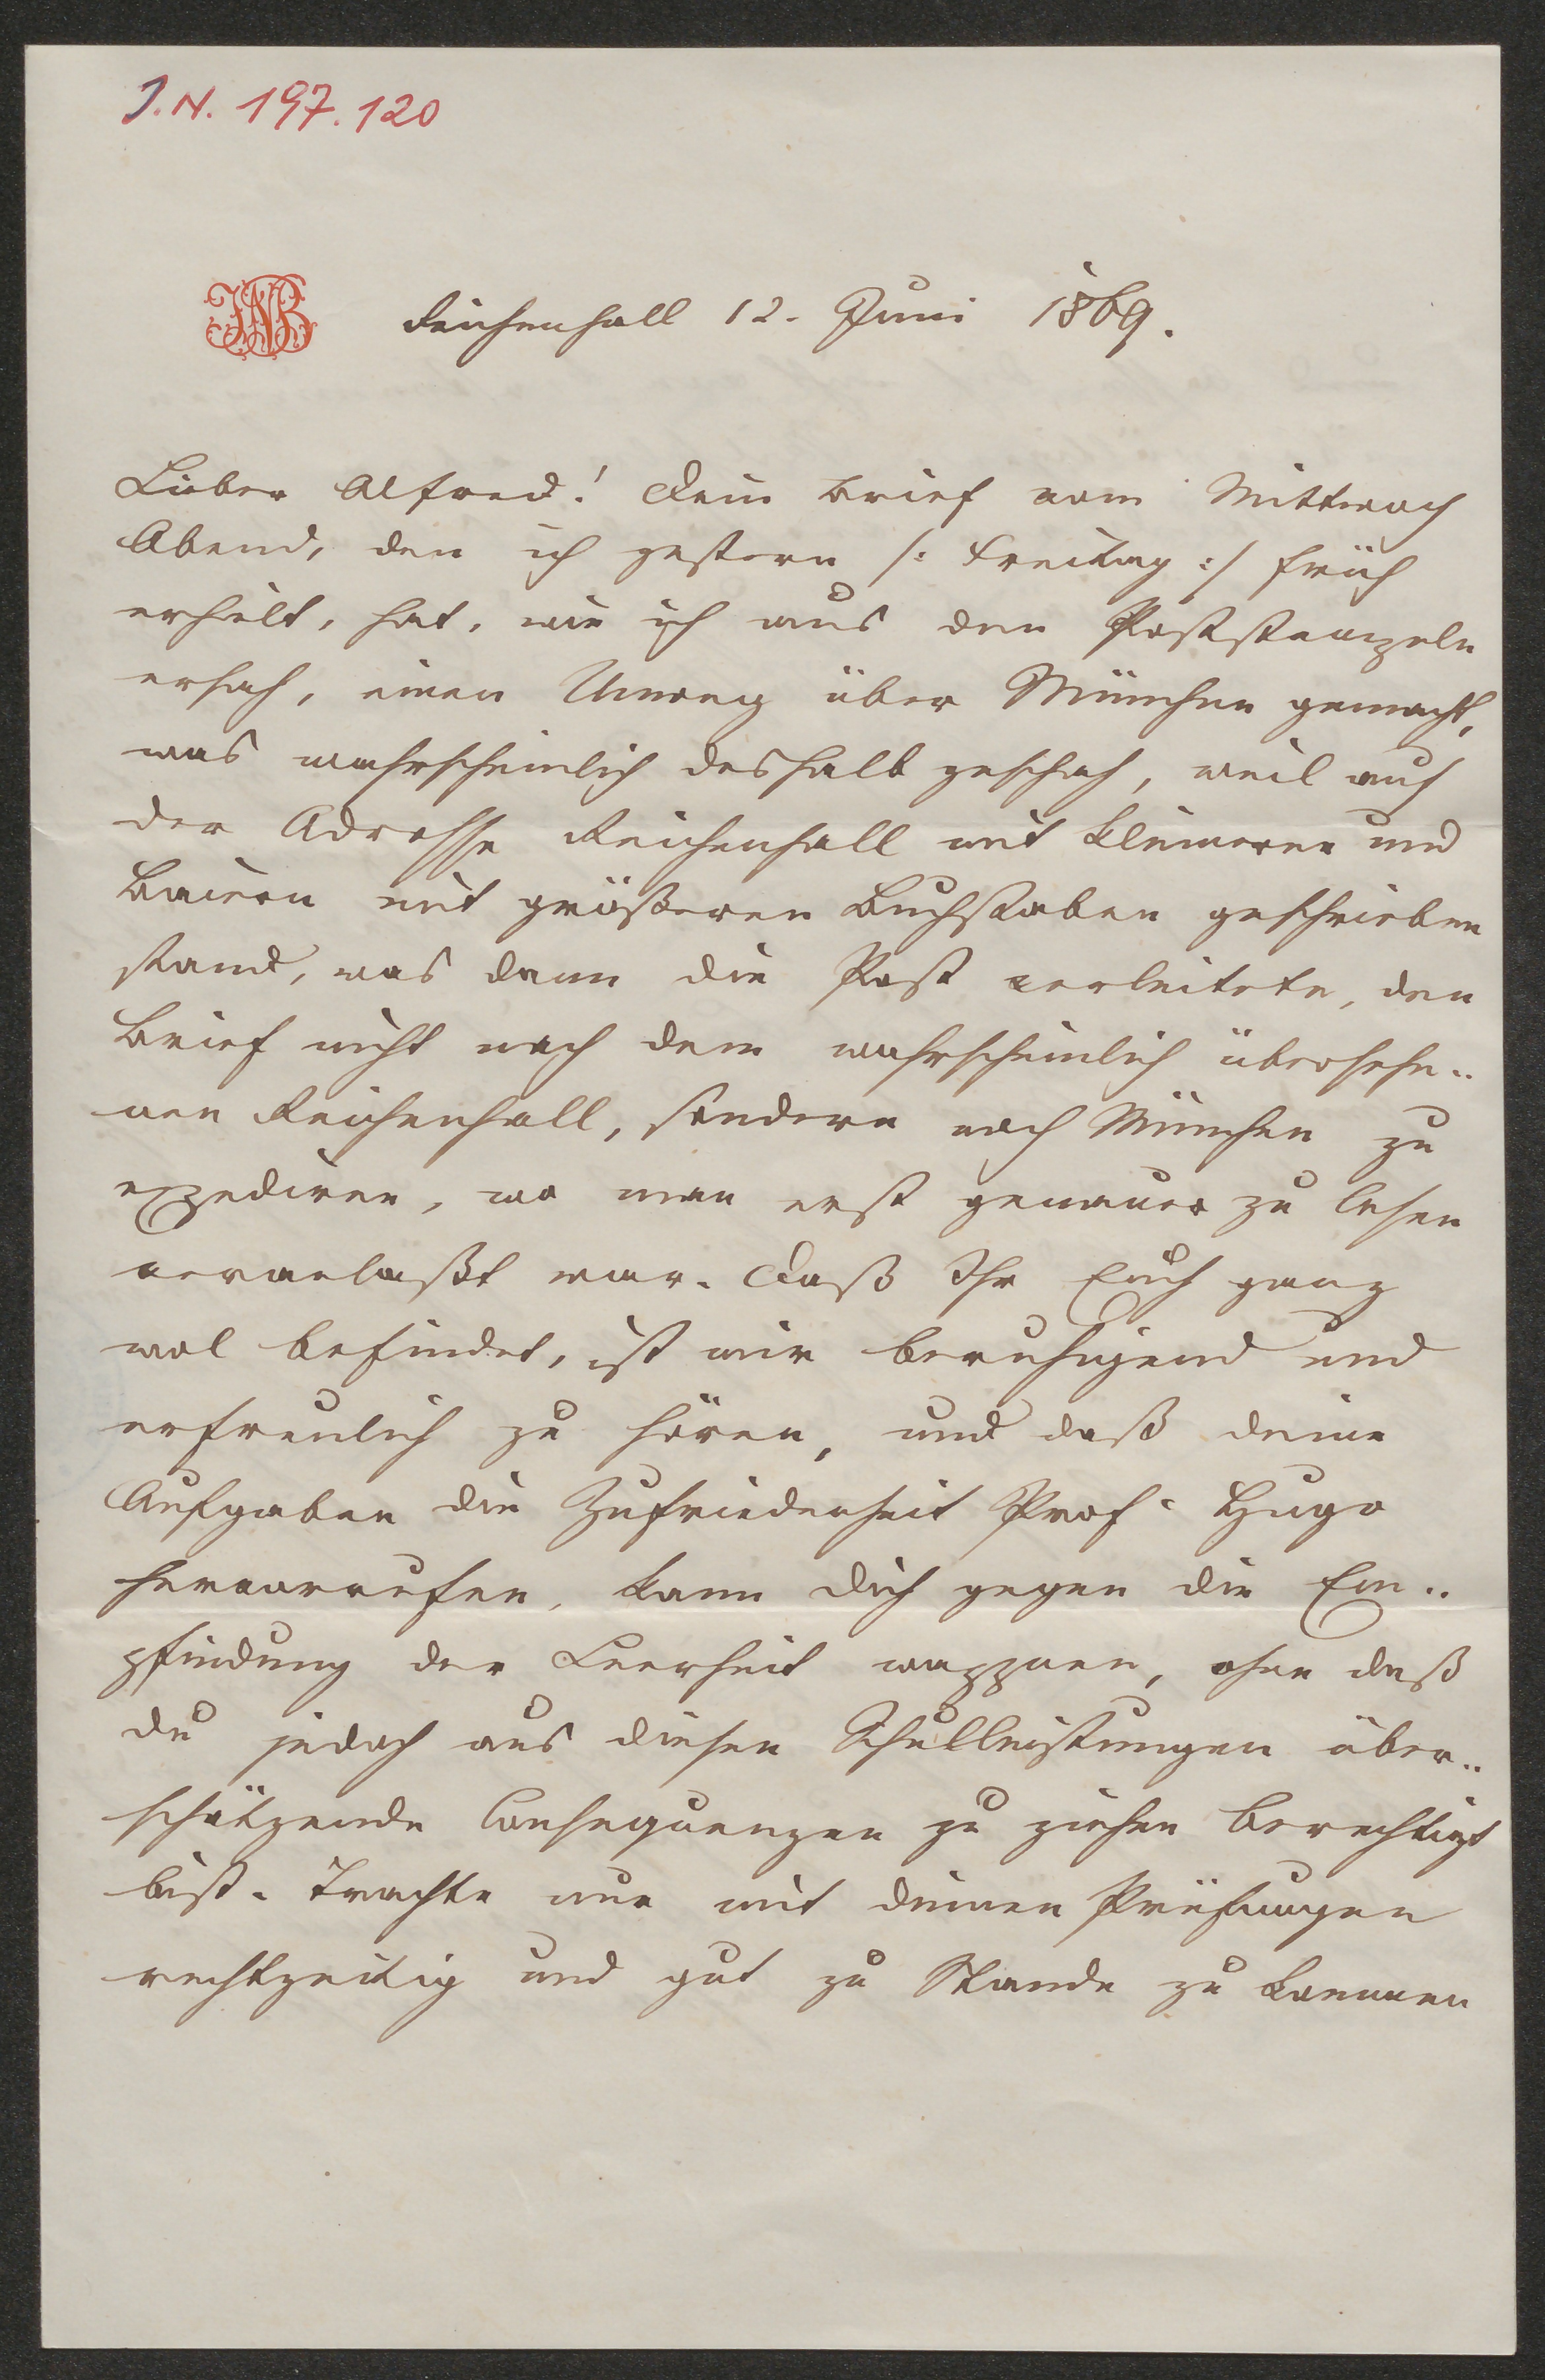 J.N. 197.120
JNB
Reichenhall 12. Juni 1869.
Lieber Alfred! Dein Brief vom Mittwoch
Abend, den ich gestern /: Freitag :/ früh
erhielt, hat, wie ich aus den Poststempeln
ersah, einen Umweg über München gemacht,
was wahrscheinlich deshalb geschah, weil auf
der Adresse Reichenhall mit kleineren und
Baiern mit größeren Buchstaben geschrieben
stand, was dann die Post verleitete, den
Brief nicht nach dem wahrscheinlich übersehe„
nen Reichenhall, sondern nach München zu
expediren, wo man erst genauer zu lesen
veranlaßt war. Daß Ihr Euch ganz
wol befindet, ist mir beruhigend und
erfreulich zu hören, und daß deine
Aufgaben die Zufriedenheit Prof. Hugo
hervorrufen, kann dich gegen die Em„
pfindung der Leerheit wappnen, ohne daß
du jedoch aus diesen Schulleistungen über„
schätzende Consequenzen zu ziehen berechtigt
bist. Trachte nur mit deinen Prüfungen
rechtzeitig und gut zu Stande zu kommen